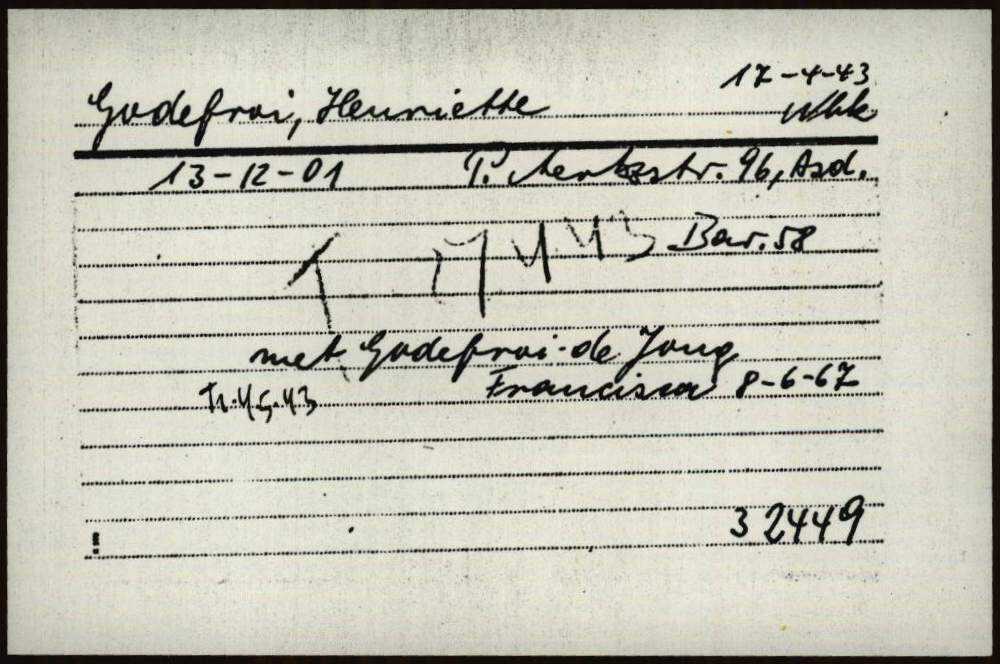 17-4-43
Godefroi, Henriette
13-12-01 P. Aertszstr. 96, Asd.
Bar. 58
met Godefroi-de Jong
Francisca 8-6-67
Tr. 4.5.43
32449